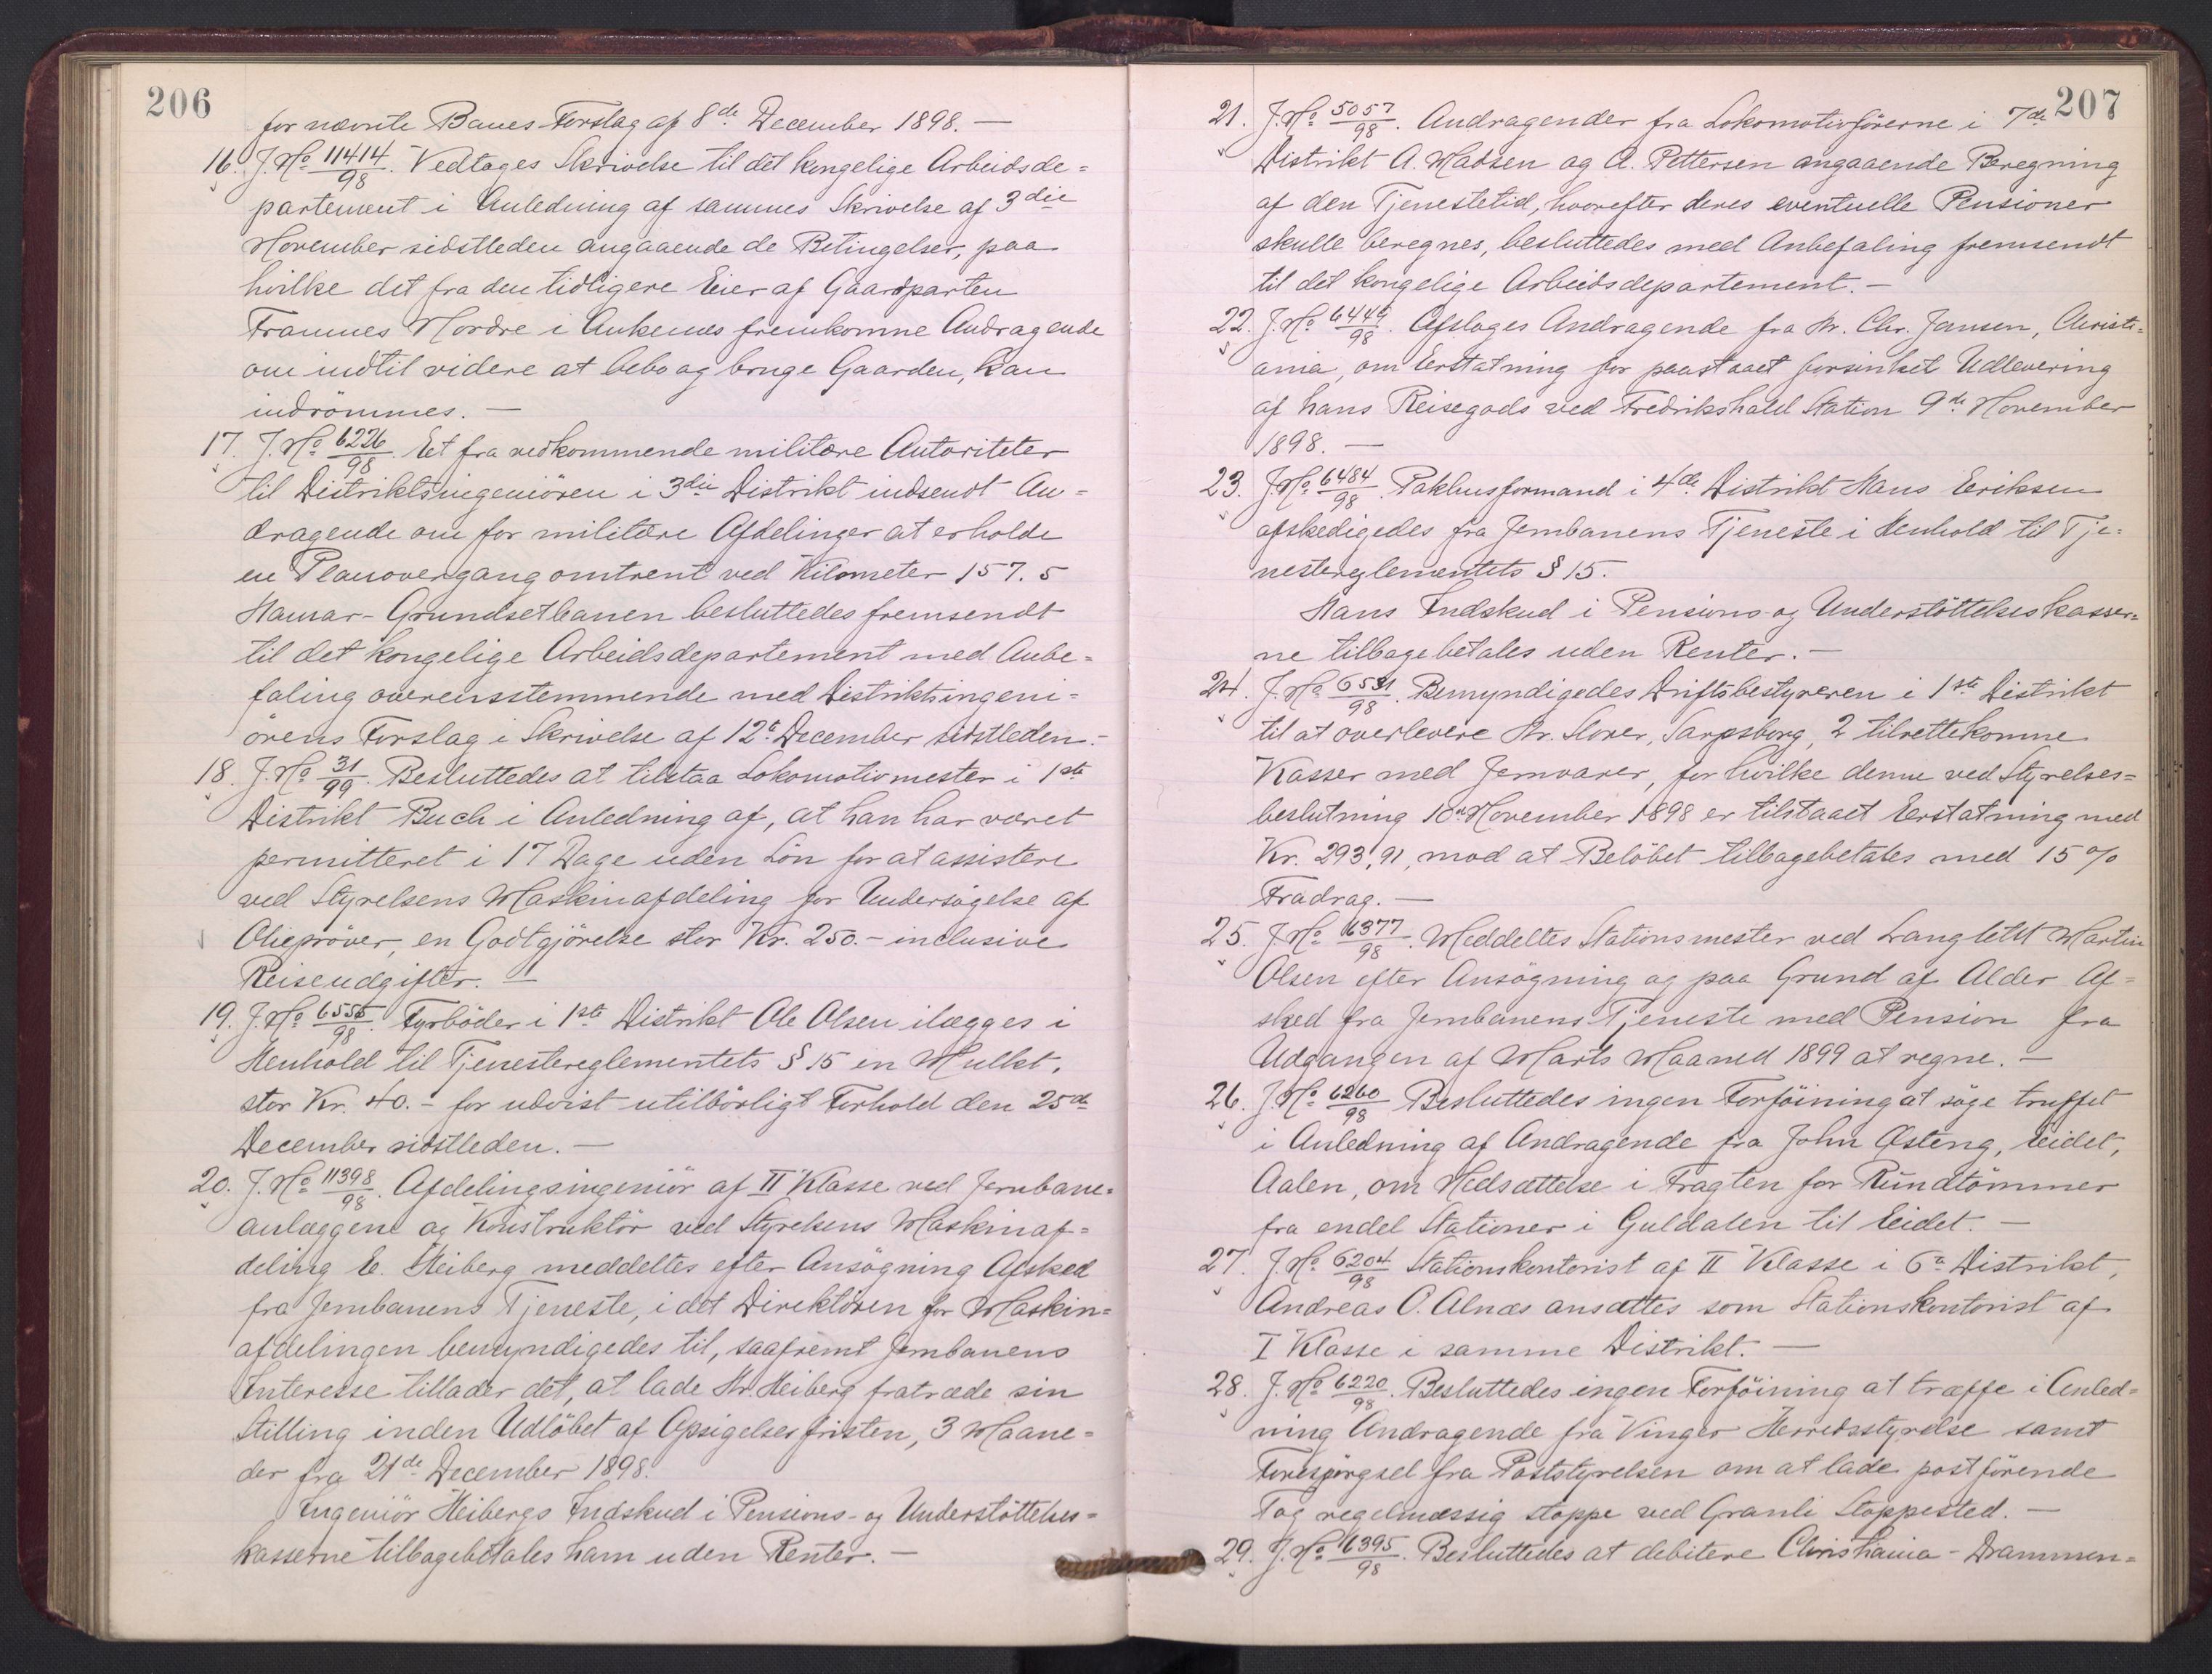 206
for nævnte Banes Forslag af 8de December 1898. —
16. J. No 11414/98. Vedtages Skrivelse til det kongelige Arbeidsde=
partement i Anledning af sammes Skrivelse af 3die
November sidstleden angaaende de Betingelser, paa
hvilke det fra den tidligere Eier af Gaardparten
Framnes Nordre i Ankenes fremkomne Andragende
om indtil videre at bebo og bruge Gaarden, kan
indrömmes. —
17. J. No 6226/98. Et fra vedkommende militære Autoriteter
til Distriktsingeniören i 3die Distrikt indsendt An=
dragende om for militære Afdelinger at erholde
en Planovergang omtrent ved Kilometer 157.5
Hamar-Grundsetbanen besluttedes fremsendt
til det kongelige Arbeidsdepartement med Anbe=
faling overensstemmende med Distriktsingeni=
örens Forslag i Skrivelse af 12te December sidstleden. -
18. J. No 31/99. Besluttedes at tilstaa Lokomotivmester i 1ste
Distrikt Buch i Anledning af, at han har været
permitteret i 17 Dage uden Lön for at assistere
ved Styrelsens Maskinafdeling for Undersögelse af
Oliepröver, en Godtgjörelse stor Kr. 250.- inclusive
Reiseudgifter. —
19. J. No 6555/98. Fyrböder i 1ste Distrikt Ole Olsen ilægges i
Henhold til Tjenestereglementets § 15 en Mulkt,
stor Kr. 40.- for udvist utilbörligt Forhold den 25de
December sidstleden. —
20. J. No 11398/98. Afdelingsingeniör af II Klasse ved Jernbane=
anlæggene og Konstruktör ved Styrelsens Maskinaf=
deling E. Heiberg meddeltes efter Ansögning Afsked
fra Jernbanens Tjeneste, idet Direktören for Maskin=
afdelingen bemyndigedes til, saafremt Jernbanens
Interesse tillader det, at lade Hr. Heiberg fratræde sin
Stilling inden Udlöbet af Opsigelsesfristen, 3 Maane=
der fra 21de December 1898.
Ingeniör Heibergs Indskud i Pensions- og Understöttelses=
kasserne tilbagebetales ham uden Renter. —
207
21. J. No 5057/98. Andragender fra Lokomotivförerne i 7de
Distrikt A. Madsen og A. Pettersen angaaende Beregning
af den Tjenestetid, hvorefter deres eventuelle Pensioner
skulle beregnes, besluttedes med Anbefaling fremsendt
til det kongelige Arbeidsdepartement. —
22. J. No 6449/98. Afslages Andragende fra Hr. Chr. Jansen, Christi=
ania, om Erstatning for paastaaet forsinket Udlevering
af hans Reisegods ved Fredrikshald Station 9de November
1898. —
23. J. No 6484/98. Pakhusformand i 4de Distrikt Hans Eriksen
afskedigedes fra Jernbanens Tjeneste i Henhold til Tje=
nestereglementets § 15.
Hans Indskud i Pensions- og Understöttelseskasser=
ne tilbagebetales uden Renter. —
24. J. No 6531/98. Bemyndigedes Driftsbestyreren i 1ste Distrikt
til at overlevere Hr. Storer, Sarpsborg, 2 tilrettekomne
Kasser med Jernvarer, for hvilke denne ved Styrelses=
beslutning 10de November 1898 er tilstaaet Erstatning med
Kr. 293,91, mod at Belöbet tilbagebetales med 15 %
Fradrag. —
25. J. No 6377/98. Meddeltes Stationsmester ved Langletet Martin
Olsen efter Ansögning og paa Grund af Alder Af=
sked fra Jernbanens Tjeneste med Pension fra
Udgangen af Marts Maaned 1899 at regne. —
26. J. No 6260/98 Besluttedes ingen Forföining at söge truffet
i Anledning af Andragende fra John Østeng, Eidet,
Aalen, om Nedsættelse i Fragten for Rundtömmer
fra endel Stationer i Guldalen til Eidet. —
27. J. No 6204/98 Stationskontorist af II Klasse i 6te Distrikt,
Andreas O. Alnæs ansættes som Stationskontorist af
I Klasse i samme Distrikt. —
28. J. No 6220/98. Besluttedes ingen Forföining at træffe i Anled=
ning Andragende fra Vinger Herredsstyrelse samt
Forespörgsel fra Poststyrelsen om at lade postförende
Tog regelmæssig stoppe ved Granli Stoppested. —
29. J. No 6395/98. Besluttedes at debitere Christiania-Drammen=